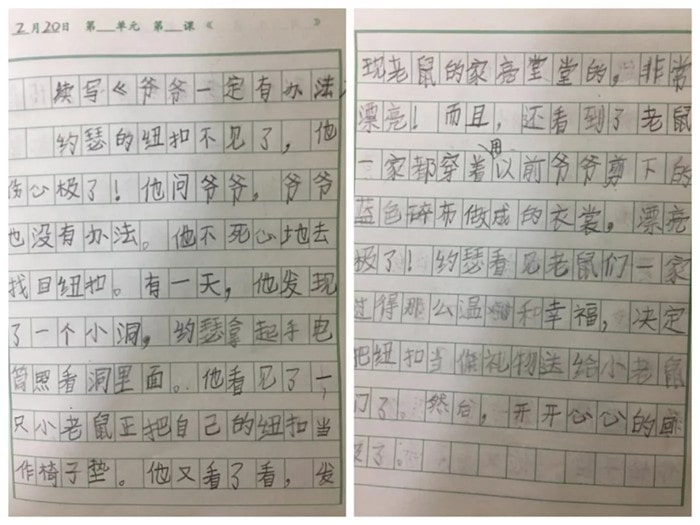 2月20日 第__单元 第__课《 》
续写《爷爷一定有办法
约瑟的纽扣不见了，他
伤心极了！他问爷爷，爷爷
也没有办法。他不死心地去
找目纽扣。有一天，他发现
了一个小洞，约瑟拿起手电
筒照看洞里面。他看见了一
只小老鼠正把自己的纽扣当
作椅子垫。他又看了看，发
现老鼠的家亮堂堂的，非常
漂亮！而且，还看到了老鼠
一家都穿着用以前爷爷剪下的
蓝色碎布做成的衣裳。漂亮
极了！约瑟看见老鼠们一家
过得那么温和幸福，决定
把纽扣当做礼物送给小老鼠
们了。然后，开开心心的回
家了。